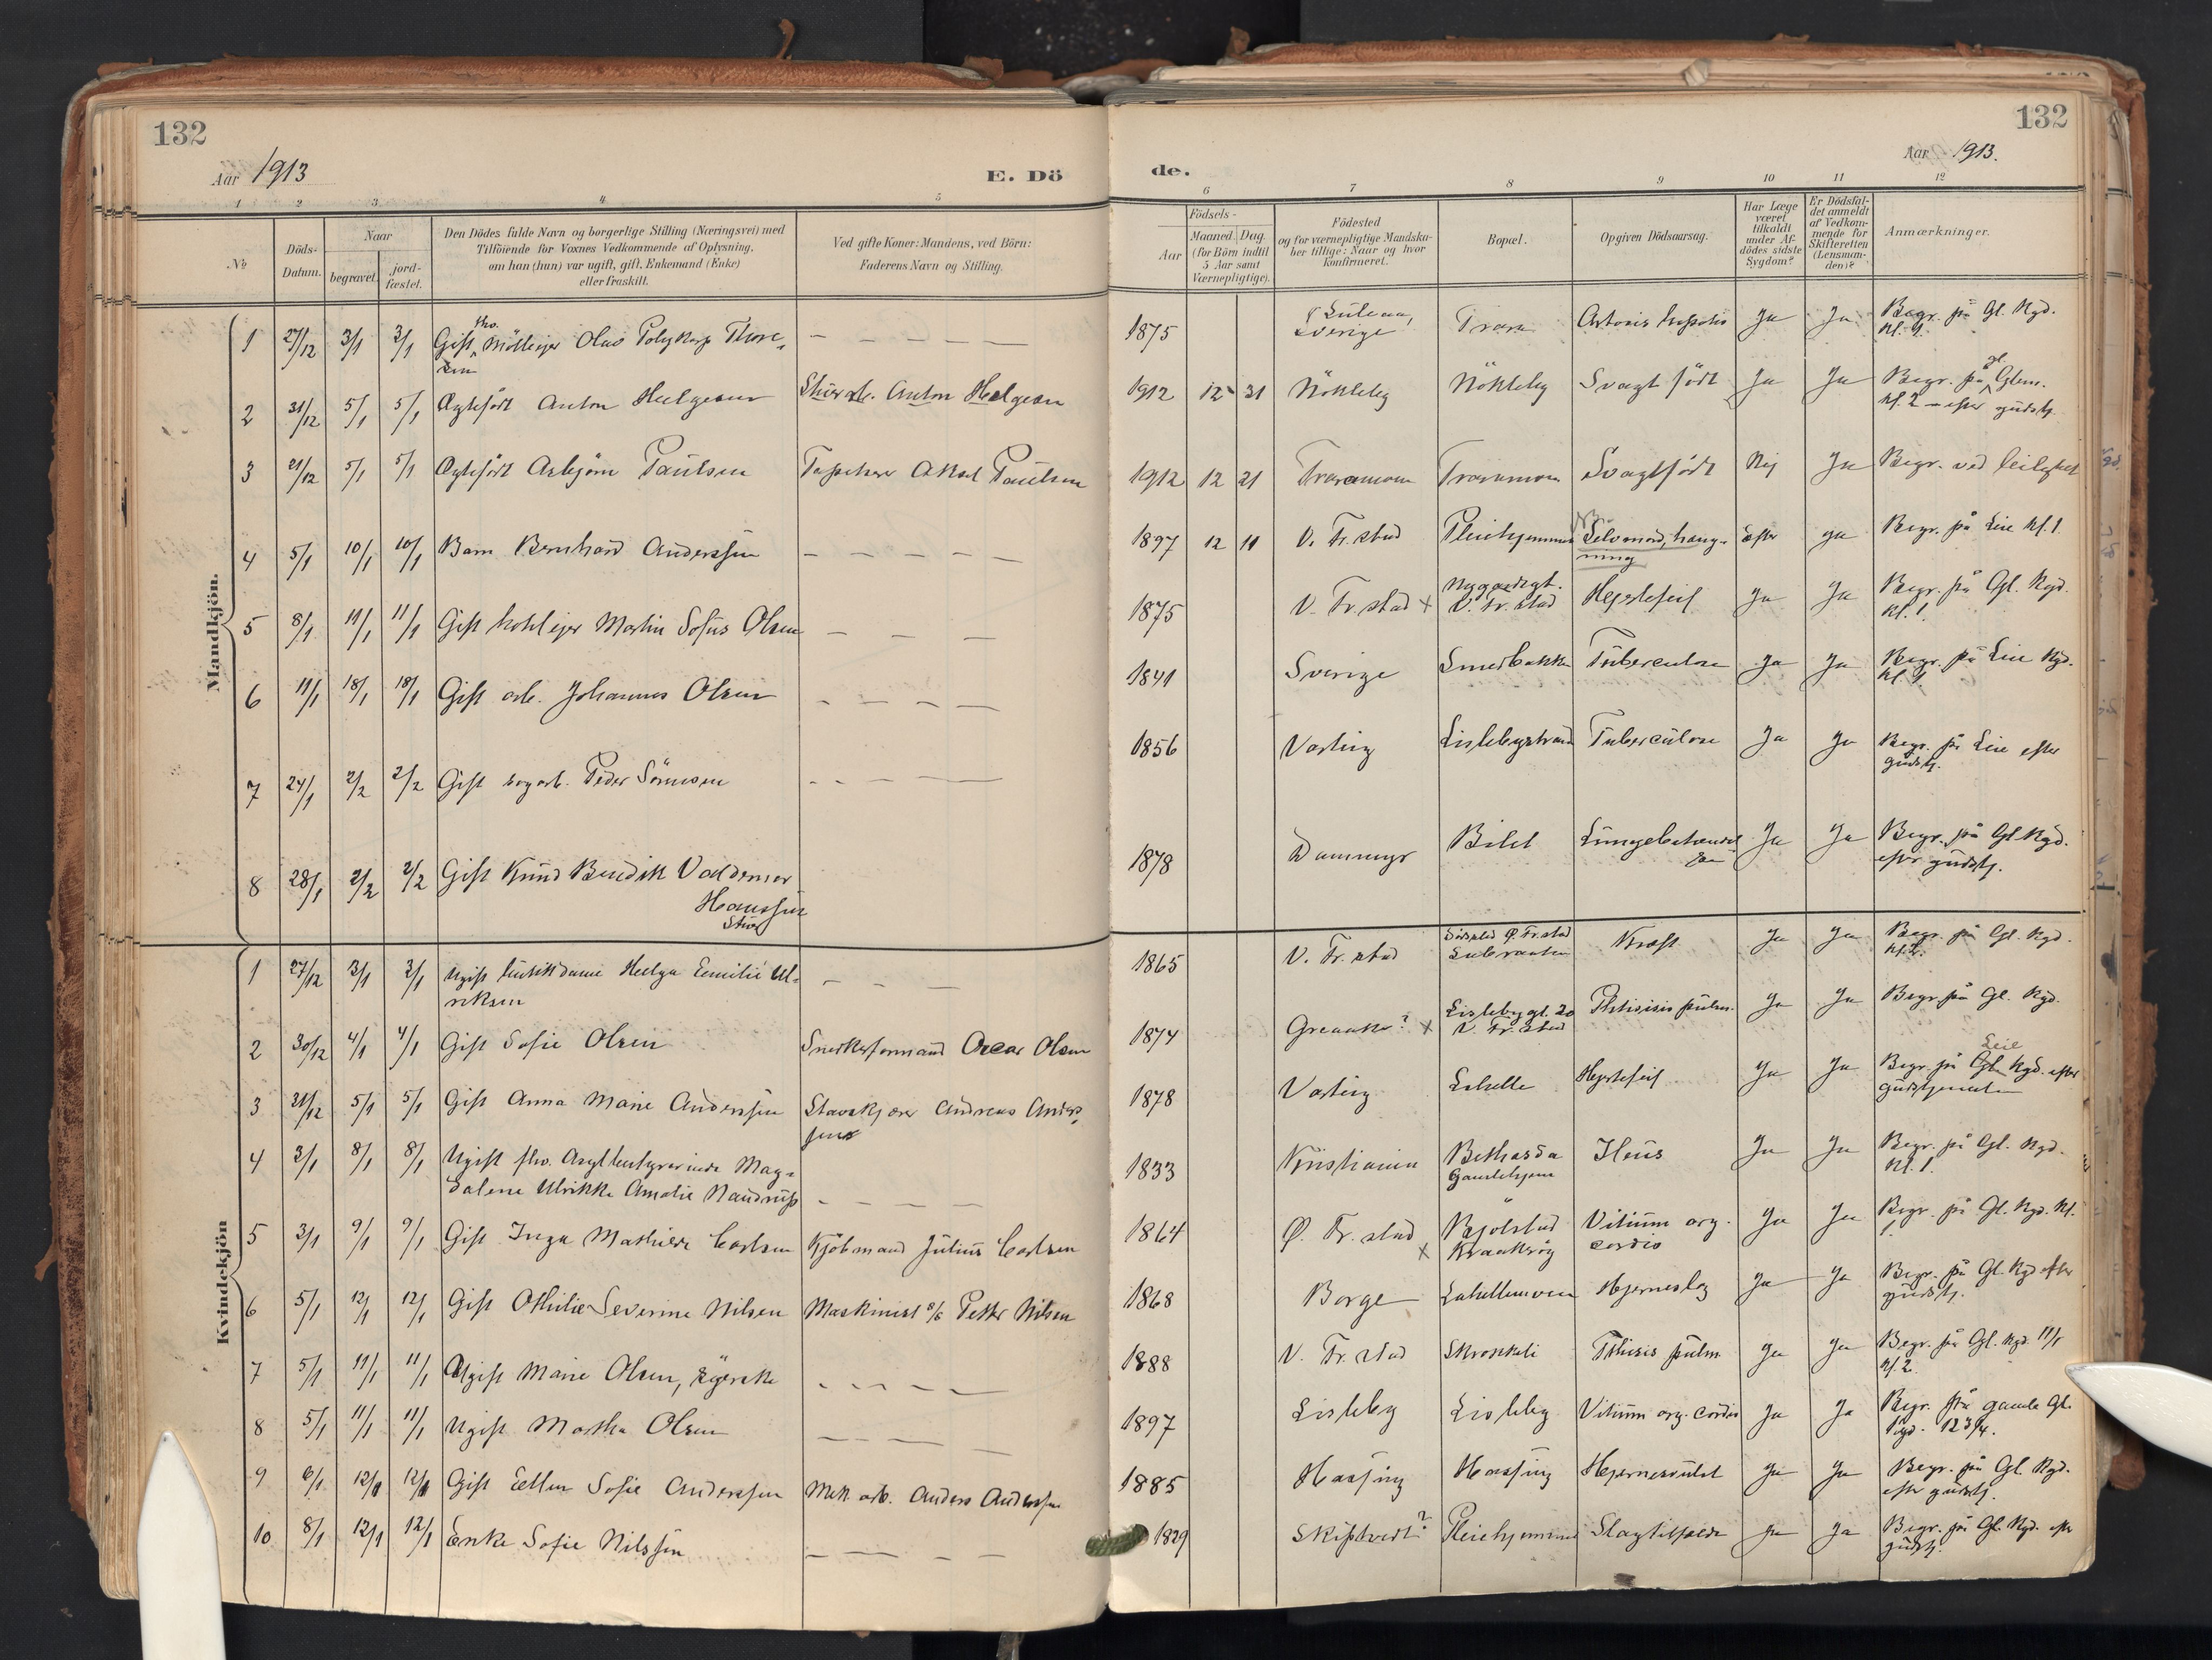 132
Aar 1913
E. Dö
1 2 3 4 5
No
Döds-Datum.
Naar
begravet.
jord-fæstet.
Den Dödes fulde Navn og borgerlige Stilling (Næringsvei) med
Tilföiende for Voxnes Vedkommende af Oplysning,
om han (hun) var ugift, gift, Enkemand (Enke)
eller fraskilt.
Ved gifte Koner: Mandens, ved Börn:
Faderens Navn og Stilling.
Mandkjön.
1 27/12 3/1 3/1 Gift fhv. Mölleejer Olaus Polykarp Thore-
sen
2 31/12 5/1 5/1 Ægtefödt Anton Helgesen Anton Helgesen
3 21/12 5/1 5/1 Ægtefödt Asbjørn Paulsen Tapetserer Aksel Paulsen
4 5/1 10/1 10/1 Barn Bernhard Anderssen
5 8/1 11/1 11/1 Gift hotelejer Martin Sofus Olsen
6 11/1 18/1 18/1 Gift arb. Johannes Olsen
7 24/1 2/2 2/2 Gift Peder Sörensen
8 28/1 2/2 2/2 Gift Knud Bendik Valdemar
Hanssen
Kvindekjön
1 27/12 3/1 3/1 Ugift butikdame Helga Emilie Ul-
riksen
2 30/12 4/1 4/1 Gift Sofie Olsen Snedkerformand Oscar Olsen
3 31/12 5/1 5/1 Gift Anna Marie Anderssen Stavskjærer Andreas Anders-
sen
4 3/1 8/1 8/1 Ugift fhv. Asylbestyrerinde Mag-
dalene Ulrikke Amalie Naudrup
5 3/1 9/1 9/1 Gift Inga Mathilde Carlsen Kjöbmand Julius Carlsen
6 5/1 12/1 12/1 Gift Othilie Severine Nilsen Maskinist Petter Nilsen
7 5/1 11/1 11/1 Ugift Marie Olsen, syerske
8 5/1 11/1 11/1 Ugift Martha Olsen
9 6/1 12/1 12/1 Gift Ellen Sofie Anderssen Mek. arb. Anders Anderssen
10 8/1 12/1 12/1 Enke Sofie Nilssen
132
Aar 1913.
de.
6 7 8 9 10 11 12
Födsels-
Aar
Maaned. Dag.
(for Börn indtil
5 Aar samt
Værnepligtige).
Födested
og for værnepligtige Mandska-
ber tillige: Naar og hvor
konfirmeret.
Bopæl.
Opgiven Dödsaarsag.
Har Læge
været
tilkaldt
under Af-
dödes sidste
Sygdom?
Er Dödsfal-
det anmeldt
af Vedkom-
mende for
Skifteretten
(Lensman-
den)?
Anmærkninger.
1875 Luleaa, Sverige Trara Ja Ja Begr. på Gl. Kgd.
kl. 1.
1912 12 31 Nökleby Nökleby Svagt födt Ja Ja Begr. på gl. Glem.
kl. 2 - efter gudstj.
1912 12 21 Traramoen Traramoen Svagtfödt Nej Ja Begr. ved leilighet
1897 12 11 V. Fr.stad Pleiehjemmet Selvmord, hæng-
ning Efter Ja Begr. på Leie kl. 1.
1875 V. Fr.stad x Nygaardsgt.
V. Fr.stad Hjertefeil Ja Ja Begr. på Gl. Kgd.
kl. 1.
1841 Sverige Smedbakken Tuberculose Ja Ja Begr. på Leie Kgd.
kl. 1.
1856 Varteig Lislebystrand Tuberculose Ja Ja Begr. på Leie efter
gudstj.
1878 Dammyr Bilet Lungebetændel
sen Ja Ja Begr. på Gl. Kgd.
efter gudstj.
1865 V. Fr.stad Kræft Ja Ja Begr. på Gl. Kgd.
1874 Greaaker? x Lislebygt. 20
V. Fr.stad Phtisisis pulm. Ja Ja Begr. på Gl. Kgd.
1878 Varteig Labelle Hjertefeil Ja Ja Begr. på Gl. Leie Kgd. efter
gudstjenesten
1833 Kristiania Bethesda
Gamlehjem Ileus Ja Ja Begr. på Gl. Kgd.
kl. 1.
1864 Ø. Fr.stad x Bjölstad
Kraakeröy Vitium org.
cordis Ja Ja Begr. på Gl. Kgd. kl.
1.
1868 Borge Labellemoen Hjerneslag Ja Ja Begr. på Gl. Kgd efter
gudstj.
1888 V. Fr.stad Phtisis pulm. Ja Ja Begr. på Gl. Kgd. 11/1
kl. 2.
1897 Lisleby Lisleby Vitium org. cordis Ja Ja Begr. på gamle Gl.
Kgd. 12 3/4.
1885 Haasing Haasing Hjernesvulst Ja Ja Begr. på Gl. Kgd.
efter gudstj.
1829 Skiptvedt? Pleiehjemmet Slagtilfælde Ja Ja Begr. på Gl. Kgd. efter
gudstj.